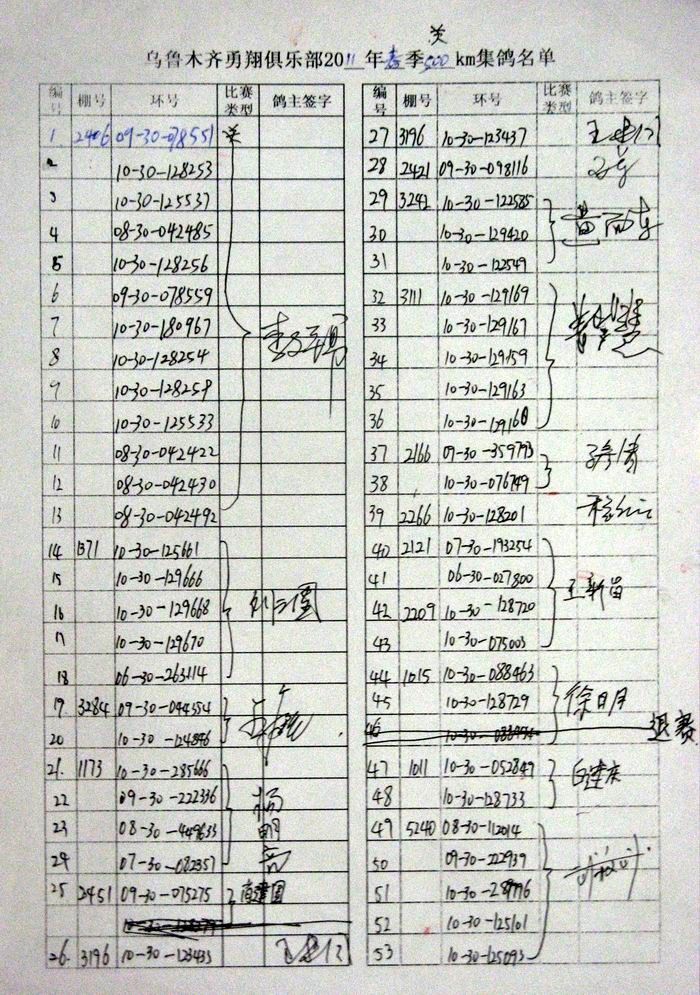 关
乌鲁木齐勇翔俱乐部2011年春季500km集鸽名单
编号 棚号 环号 比赛类型 鸽主签字
1 2406 09-30-078551 关
2 10-30-128253
3 10-30-125537
4 08-30-042485
5 10-30-128256
6 09-30-078559
7 10-30-180967
8 10-30-128254
9 10-30-128259
10 10-30-125533
11 08-30-042422
12 08-30-042430
13 08-30-042492
14 1371 10-30-125661
15 10-30-129666
16 10-30-129668
17 10-30-129670
18 06-30-263114
19 3284 09-30-044554
20 10-30-124846
21. 1173 10-30-285666
22 09-30-222336 杨
23 08-30-449633 明
24 07-30-082357
25 2451 09-30-075275
26. 3196 10-30-123433
编号 棚号 环号 比赛类型 鸽主签字
27 3196 10-30-123437
28 2421 09-30-098116
29 3242 10-30-122585
30 10-30-129420
31 10-30-122549
32 3111 10-30-129169
33 10-30-129167
34 10-30-129159
35 10-30-129163
36 10-30-129160
37 2166 09-30-359793
38 10-30-076749
39 2266 10-30-128201
40 2121 07-30-193254
41 06-30-027800 王新苗
42 2209 10-30-128720
43 10-30-075003
44 1015 10-30-088463
45 10-30-128729 徐日月
46 退赛
47 1011 10-30-052849
48 10-30-128733
49 5240 08-30-112014
50 09-30-222939
51 10-30-289796
52 10-30-125101
53 10-30-125093